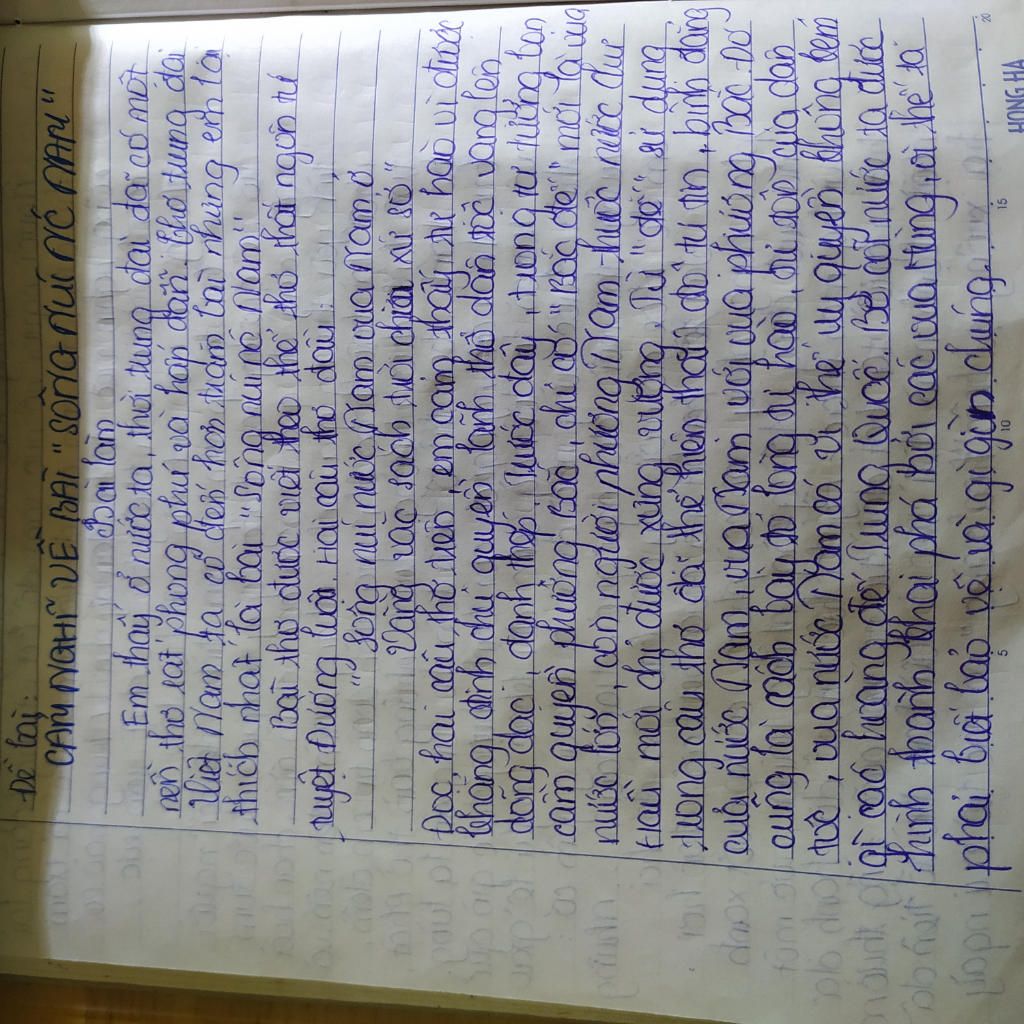 Đề bài:
CẢM NGHĨ VỀ BÀI "SÔNG NÚI NƯỚC NAM"
Bài làm
Em thấy ở nước ta, thời trung đại đã có một
nền thơ rất phong phú và hấp dẫn. Thơ trung đại
Việt Nam ta có đến hơn trăm bài nhưng em lại
thích nhất là bài "Sông núi nước Nam"
Bài thơ được viết theo thể thơ thất ngôn tứ
tuyệt Đường luật. Hai câu thơ đầu:
"Sông núi nước Nam vua Nam ở
Vằng vặc sách trời chia xứ sở"
Đọc hai câu thơ trên, em cảm thấy tự hào vì được
khẳng định chủ quyền lãnh thổ dân tộc vang lên
dõng dạc, đanh thép. Trước đây, trong tư tưởng bọn
cầm quyền phương Bắc, chỉ có "Bắc đế" mới là vua
nước lớn, còn người phương Nam thuộc nước chư
hầu mới chỉ được xưng vương. Từ "đế" sử dụng
trong câu thơ đã thể hiện thái độ tự tin, bình đẳng
của nước Nam, vua Nam với vua phương Bắc. Đó
cũng là cách bày tỏ lòng tự hào của dân
tộc, vua nước Nam có vị thế uy quyền không kém
gì các hoàng đế Trung Quốc. Bờ cõi nước ta được
hình thành khai phá bởi các vua Hùng, vì thế ta
phải biết bảo vệ và giữ gìn chúng.
5
10
15
20
HONG HA